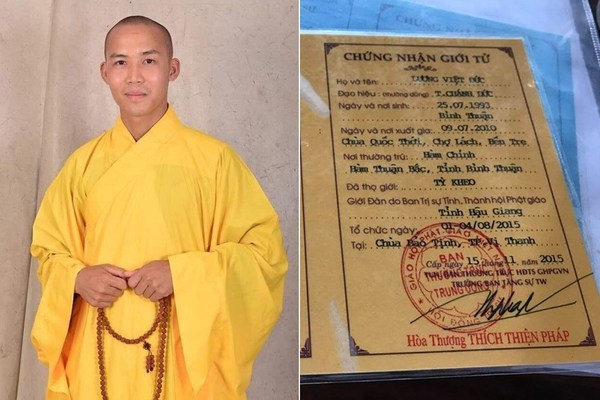 CHỨNG NHẬN GIỚI TỬ
Họ và tên: LƯƠNG VIỆT ĐỨC
Đạo hiệu: (thường dùng) T.CHÁNH ĐỨC
Ngày và nơi sinh: 25.07.1993
Bình Thuận
Ngày và nơi xuất gia: 09.07.2010
Chùa Quốc Thới, Chợ Lách, Bến Tre
Nơi thường trú: Hàm Chính
Hàm Thuận Bắc, Tỉnh Bình Thuận
Đã thọ giới: TỲ KHEO
Giới Đàn do Ban Trị sự Tỉnh, Thành hội Phật giáo
Tỉnh Hậu Giang
Tổ chức ngày: 01-04/08/2015
Tại: Chùa Bảo Tịnh, TP Vị Thanh
Cấp ngày 15 tháng 11 năm 2015
THƯỜNG TRỰC HĐTS GHPGVN
TRƯỞNG BAN TĂNG SỰ TW
BAN
TRUNG ƯƠNG
Hòa Thượng THÍCH THIỆN PHÁP